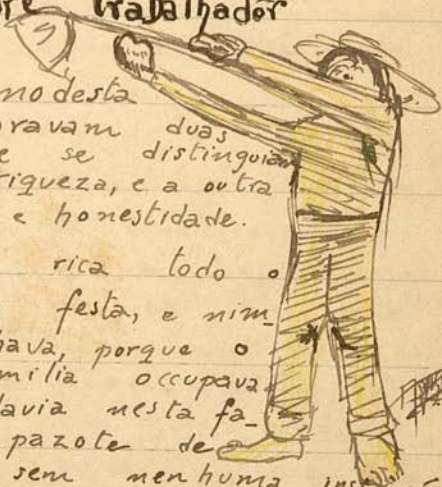 re trabalhador
modesta
oravam duas
e se distinguiam
riqueza, e a outra
e honestidade.
rica todo o
festa, e nim_
hava, porque o
milia occupava
davia nesta fa_
pazote de
sem nenhuma